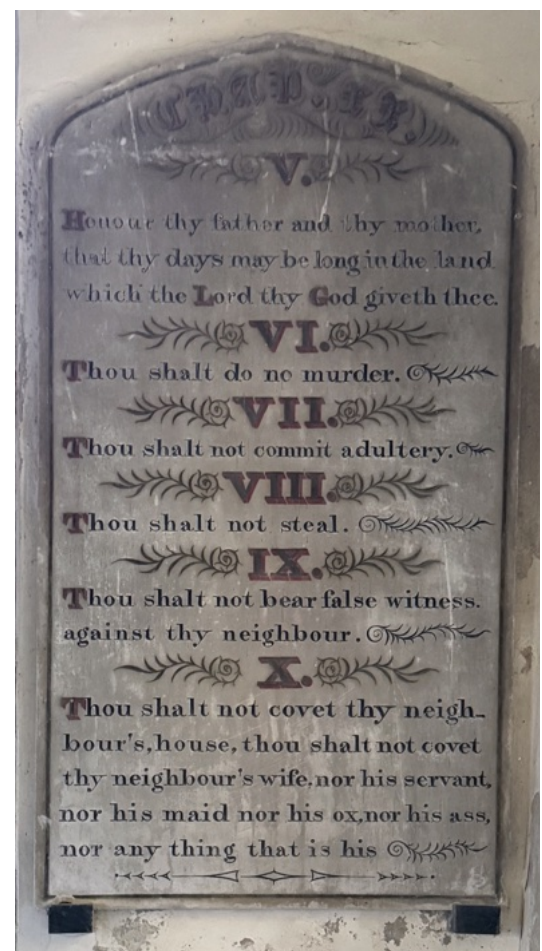 CHAP. XX.
V.
Honour thy father and thy mother,
that thy days may be long in the land
which the Lord thy God giveth thee.
VI.
Thou shalt do no murder.
VII.
Thou shalt not commit adultery.
VIII.
Thou shalt not steal.
IX.
Thou shalt not bear false witness.
against thy neighbour.
X.
Thou shalt not covet thy neigh-
bour's, house, thou shalt not covet
thy neighbour's wife, nor his servant,
nor his maid nor his ox, nor his ass,
nor any thing that is his